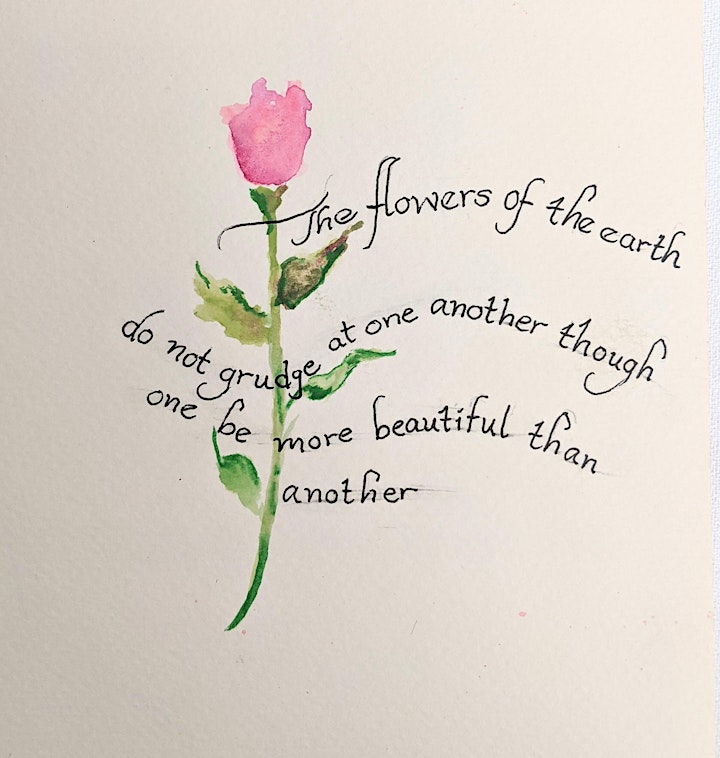 The flowers of the earth
do not grudge at one another though
one be more beautiful than
another